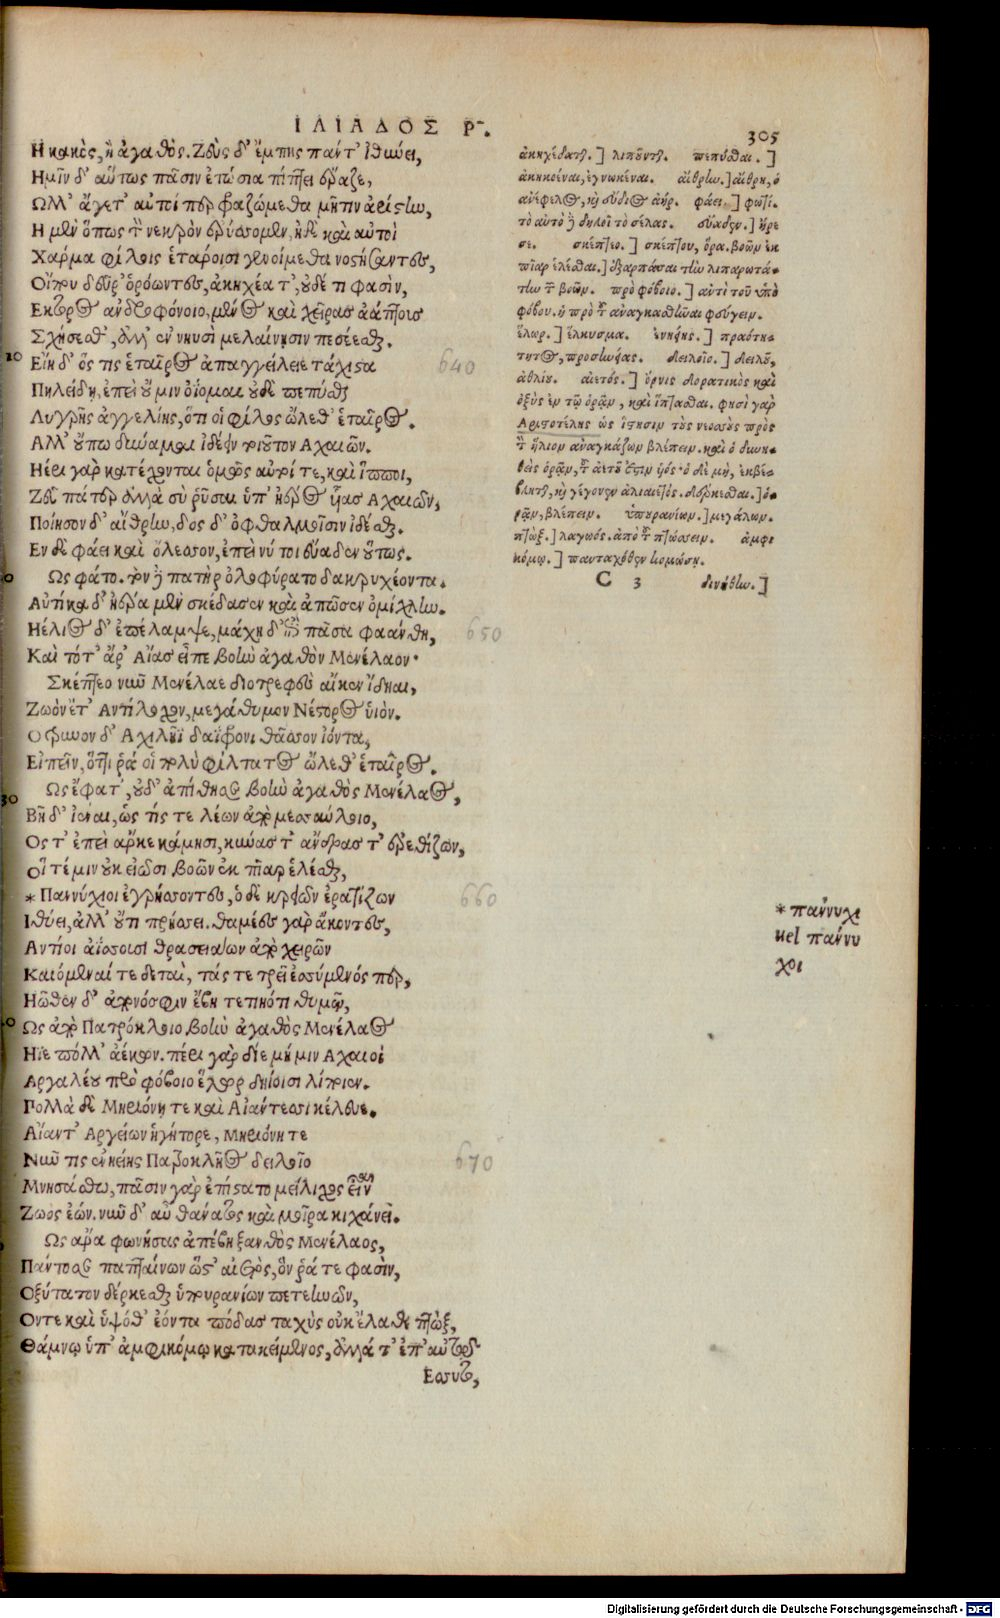 ΙΛΙΑΔΟΣ Ρ.
305
Η κακὸς, ἢ ἀγαθὸς. Ζεὺς δ' ἔμπης πάντ' ἰθύει,
Ημῖν δ' αὔτως πᾶσιν ἐτώσια πίπτει ἔραζε,
Ωλλ' ἄγετ' αὐτοί περ φραζώμεθα μῆτιν ἀρίστω,
Η μὲν ὅπως τὸν νεκρὸν ἐρύσσομεν, ἠδὲ καὶ αὐτοὶ
Χάρμα φίλοις ἑτάροισι γενοίμεθα νοστήσαντες,
Οἵπου δεῦρ' ὁρόωντες, ἀκηχέατ', οὐδέ τι φασὶν,
Εκτορος ἀνδροφόνοιο, μένος καὶ χεῖρας ἀάπτους
Σχήσεσθ', ἀλλ' ἐν νηυσὶ μελαίνησιν πεσέεσθαι.
10 Εἴη δ' ὅς τις ἑταῖρος ἀπαγγείλειε τάχιστα
640
Πηλείδη, ἐπεὶ οὔ μιν ὀΐομαι οὐδὲ πεπύσθαι
Λυγρῆς ἀγγελίης, ὅτι οἱ φίλος ὤλεθ' ἑταῖρος.
Αλλ' οὔπω δύναμαι ἰδέειν τοιοῦτον Αχαιῶν.
Ηέρι γὰρ κατέχονται ὁμῶς αὐτοί τε, καὶ ἵπποι,
Ζεῦ πάτερ ἀλλὰ σὺ ῥῦσαι ὑπ' ἠέρος υἷας Αχαιῶν,
Ποίησον δ' αἴθρlω, δὸς δ' ὀφθαλμοῖσιν ἰδέσθαι.
Εν δὲ φάει καὶ ὄλεσσον, ἐπεὶ νύ τοι εὔαδεν οὕτως.
0 Ως φάτο. τὸν δὲ πατὴρ ὀλοφύρατο δακρυχέοντα.
Αὐτίκα δ' ἠέρα μὲν σκέδασεν καὶ ἀπῶσεν ὁμίχλlω.
Ηέλιος δ' ἐπέλαμψε, μάχη δ' ἐπὶ πᾶσα φαάνθη,
650
Καὶ τότ' ἄρ' Αἴας εἶπε βοlὼ ἀγαθὸν Μενέλαον·
Σκέπτεο νῦν Μενέλαε διοτρεφὲς αἴ κεν ἴδηαι,
Ζωὸν ἔτ' Αντίλοχον, μεγάθυμον Νέστορος ὑιόν.
Οτρυνον δ' Αχιλῆϊ δαΐφρονι θᾶσσον ἰόντα,
Εἰπεῖν, ὅττι ῥά οἱ πολὺ φίλτατος ὤλεθ' ἑταῖρος.
Ως ἔφατ', οὐδ' ἀπίθησε βοlὼ ἀγαθὸς Μενέλαος,
30 Βῆ δ' ἰέναι, ὥς τίς τε λέων ἀπὸ μεσσαύλοιο,
Ος τ' ἐπεὶ ἄρ κε κάμησι, κύνας τ' ἄνδρας τ' ἐρεθίζων,
Οἵ τέ μιν οὐκ εἰῶσι βοῶν ἐκ πῖαρ ἑλέσθαι,
* Παννύχιοι ἐγρήσσοντες, ὁ δὲ κρειῶν ἐρατίζων
660
Ιθύει, ἀλλ' οὔτι πρήσσει. θαμέες γὰρ ἄκοντες,
Αντίοι ἀΐσσουσι θρασειάων ἀπὸ χειρῶν
Καιόμεναί τε δεταὶ, τάς τε τρεῖ ἐσσύμενός περ,
Ηῶθεν δ' ἀπονόσφιν ἔβη τετιηότι θυμῷ,
0 Ως ἀπὸ Πατρόκλοιο βοlὼ ἀγαθὸς Μενέλαος
Ηϊε πόλλ' ἀέκων. πέρι γὰρ δίε μή μιν Αχαιοὶ
Αργαλέου πρὸ φόβοιο ἕλωρ δηίοισι λίποιεν.
Πολλὰ δὲ Μηριόνῃ τε καὶ Αἰάντεσσι κέλευε.
Αἴαντ' Αργείων ἡγήτορε, Μηριόνη τε
Νῦν τις ἐνηείης Πατροκλῆος δειλοῖο
670
Μνησάσθω, πᾶσιν γὰρ ἐπίστατο μείλιχος εἶναι
Ζωὸς ἐών. νῦν δ' αὖ θάνατος καὶ μοῖρα κιχάνει.
Ως ἄρα φωνήσας ἀπέβη ξανθὸς Μενέλαος,
Πάντοσε παπταίνων ὥστ' αἰετὸς, ὅν ῥά τε φασὶν,
Οξύτατον δέρκεσθαι ὑπουρανίων πετεlωῶν,
Οντε καὶ ὑψόθ' ἐόντα πόδας ταχὺς οὐκ ἔλαθε πτὼξ,
Θάμνῳ ὑπ' ἀμφικόμῳ κατακείμενος, ἀλλά τ' ἐπ' αὐτῷ
Εσσυτο,
ἀκηχέδατ. ] λιποῦντ. πεπύσθαι. ]
ἀκηκοέναι, ἐγνωκέναι. αἴθρlω. ] αἴθρη, ὁ
ἀνέφελος, καὶ εὔδιος ἀήρ. φάει. ] φωτί.
τὸ αὐτὸ δὲ δηλοῖ τὸ σέλας. εὔαδεν. ] ἤρε
σε. σκέπτεο. ] σκέπτου, ὅρα. βοῶν ἐκ
πῖαρ ἑλέσθαι. ] ἐξαρπάσαι τlὼ λιπαρωτά-
τlω τῶν βοῶν. πρὸ φόβοιο. ] ἀντὶ τοῦ ὑπὸ
φόβου. ἢ πρὸ τοῦ ἀναγκασθῆναι φεύγειν.
ἕλωρ. ] ἕλκυσμα. ἐνηείης. ] πραότη-
τητος, προσlωείας. δειλοῖο. ] δειλοῦ,
ἀθλίου. αἰετός. ] ὄρνις ὁρατικὸς καὶ
ὀξὺς ἐν τῷ ὁρᾶν, καὶ ἵπτασθαι. φησὶ γὰρ
Αριστοτέλης ὡς ἵστησιν τοὺς νεοσσοὺς πρὸς
τὸν ἥλιον ἀναγκάζων βλέπειν. καὶ ὁ δυνη-
θεὶς ὁρᾶν, τοῦ ἀετοῦ ἐστιν υἱός· ὁ δὲ μὴ, ἐκβέ-
βληται, καὶ γέγονεν ἁλιαίετος. δέρκεσθαι. ] ὁ-
ρᾶν, βλέπειν. ὑπουρανίων. ] μεγάλων.
πτὼξ. ] λαγωός. ἀπὸ τοῦ πτώσσειν. ἀμφι
κόμῳ. ] πανταχόθεν κομώσῃ.
C 3 δινήθlω. ]
* παννυχι
uel παννυ
χοι
Digitalisierung gefördert durch die Deutsche Forschungsgemeinschaft - DFG